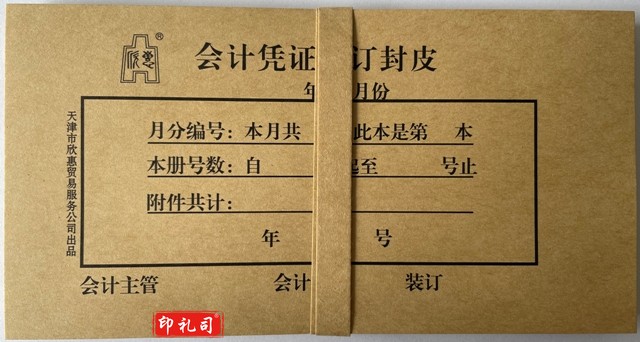 欣惠®
会计凭证 订封皮
年 月份
月分编号：本月共 此本是第 本
本册号数：自 起至 号止
附件共计：
年 号
会计主管 会计 装订
天津市欣惠贸易服务公司出品
印礼司